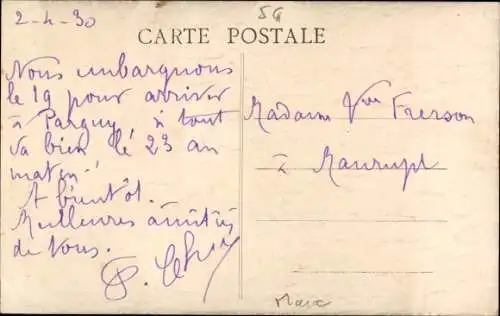 2-4-30
5G
CARTE POSTALE
Nous embarquons
le 19 pour arriver
à Pargny si tout
va bien le 23 au
matin.
A bientôt.
Meilleures amitiés
de Vous.
Madame Vve Frerson
à Maurupt
Maroc